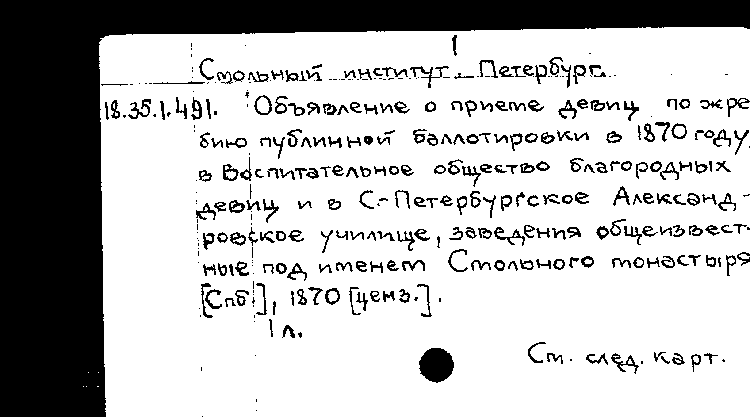 1
Смольный институт. Петербург.
18.35.1.491. Объявление о приеме девиц по жре
бию публичной баллотировки в 1870 году,
в Воспитательное общество благородных
девиц и в С-Петербургское Александ-
ровское училище, заведения общеизвест-
ные под именем Смольного монастыря
[Спб.], 1870 [ценз.].
1 л.
См. след. карт.